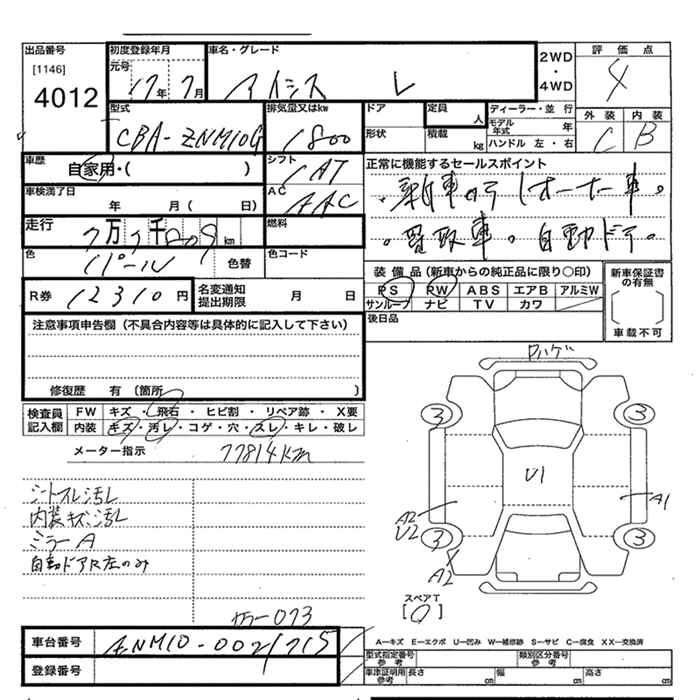 出品番号
[1146]
4012
初度登録年月
元号
17年 7月
車名・グレード
アイシス L
2WD
・
4WD
評価点
4
型式
CBA-ZNM10G
排気量又はkw
1800
ドア
形状
定員
人
積載
kg
ディーラー・並行
モデル年式 年
ハンドル 左・右
外装 内装
C B
車歴
自家用・( )
シフト
AT
車検満了日
年 月( 日)
AC
AAC
正常に機能するセールスポイント
・新車時 1オーナー車。
・買取車。自動ドア。
走行
7万7千 km
燃料
色
パール
色替
色コード
R券 12310円
名変通知
提出期限
月 日
装備品(新車からの純正品に限り○印)
PS PW ABS エアB アルミW
サンルーフ ナビ TV カワ
後日品
新車保証書
の有無
車載不可
注意事項申告欄(不具合内容等は具体的に記入して下さい)
修復歴 有(箇所 )
検査員
記入欄
FW キズ・飛石・ヒビ割・リペア跡・X要
内装 キズ・汚レ・コゲ・穴・スレ・キレ・破レ
メーター指示
77814km
シートスレ汚レ
内装キズ、汚レ
ミラーA
自動ドアR左のみ
カラー073
ロハゲ
3 3
U1
A1
A2
U2
3 3
A2
スペアT
[0]
車台番号 ZNM10-0021715
登録番号
A―キズ E―エクボ U―凹み W―補修跡 S―サビ C―腐食 XX―交換済
型式指定番号
参考
類別区分番号
参考
車庫証明用
参考
長さ cm 幅 cm 高さ cm